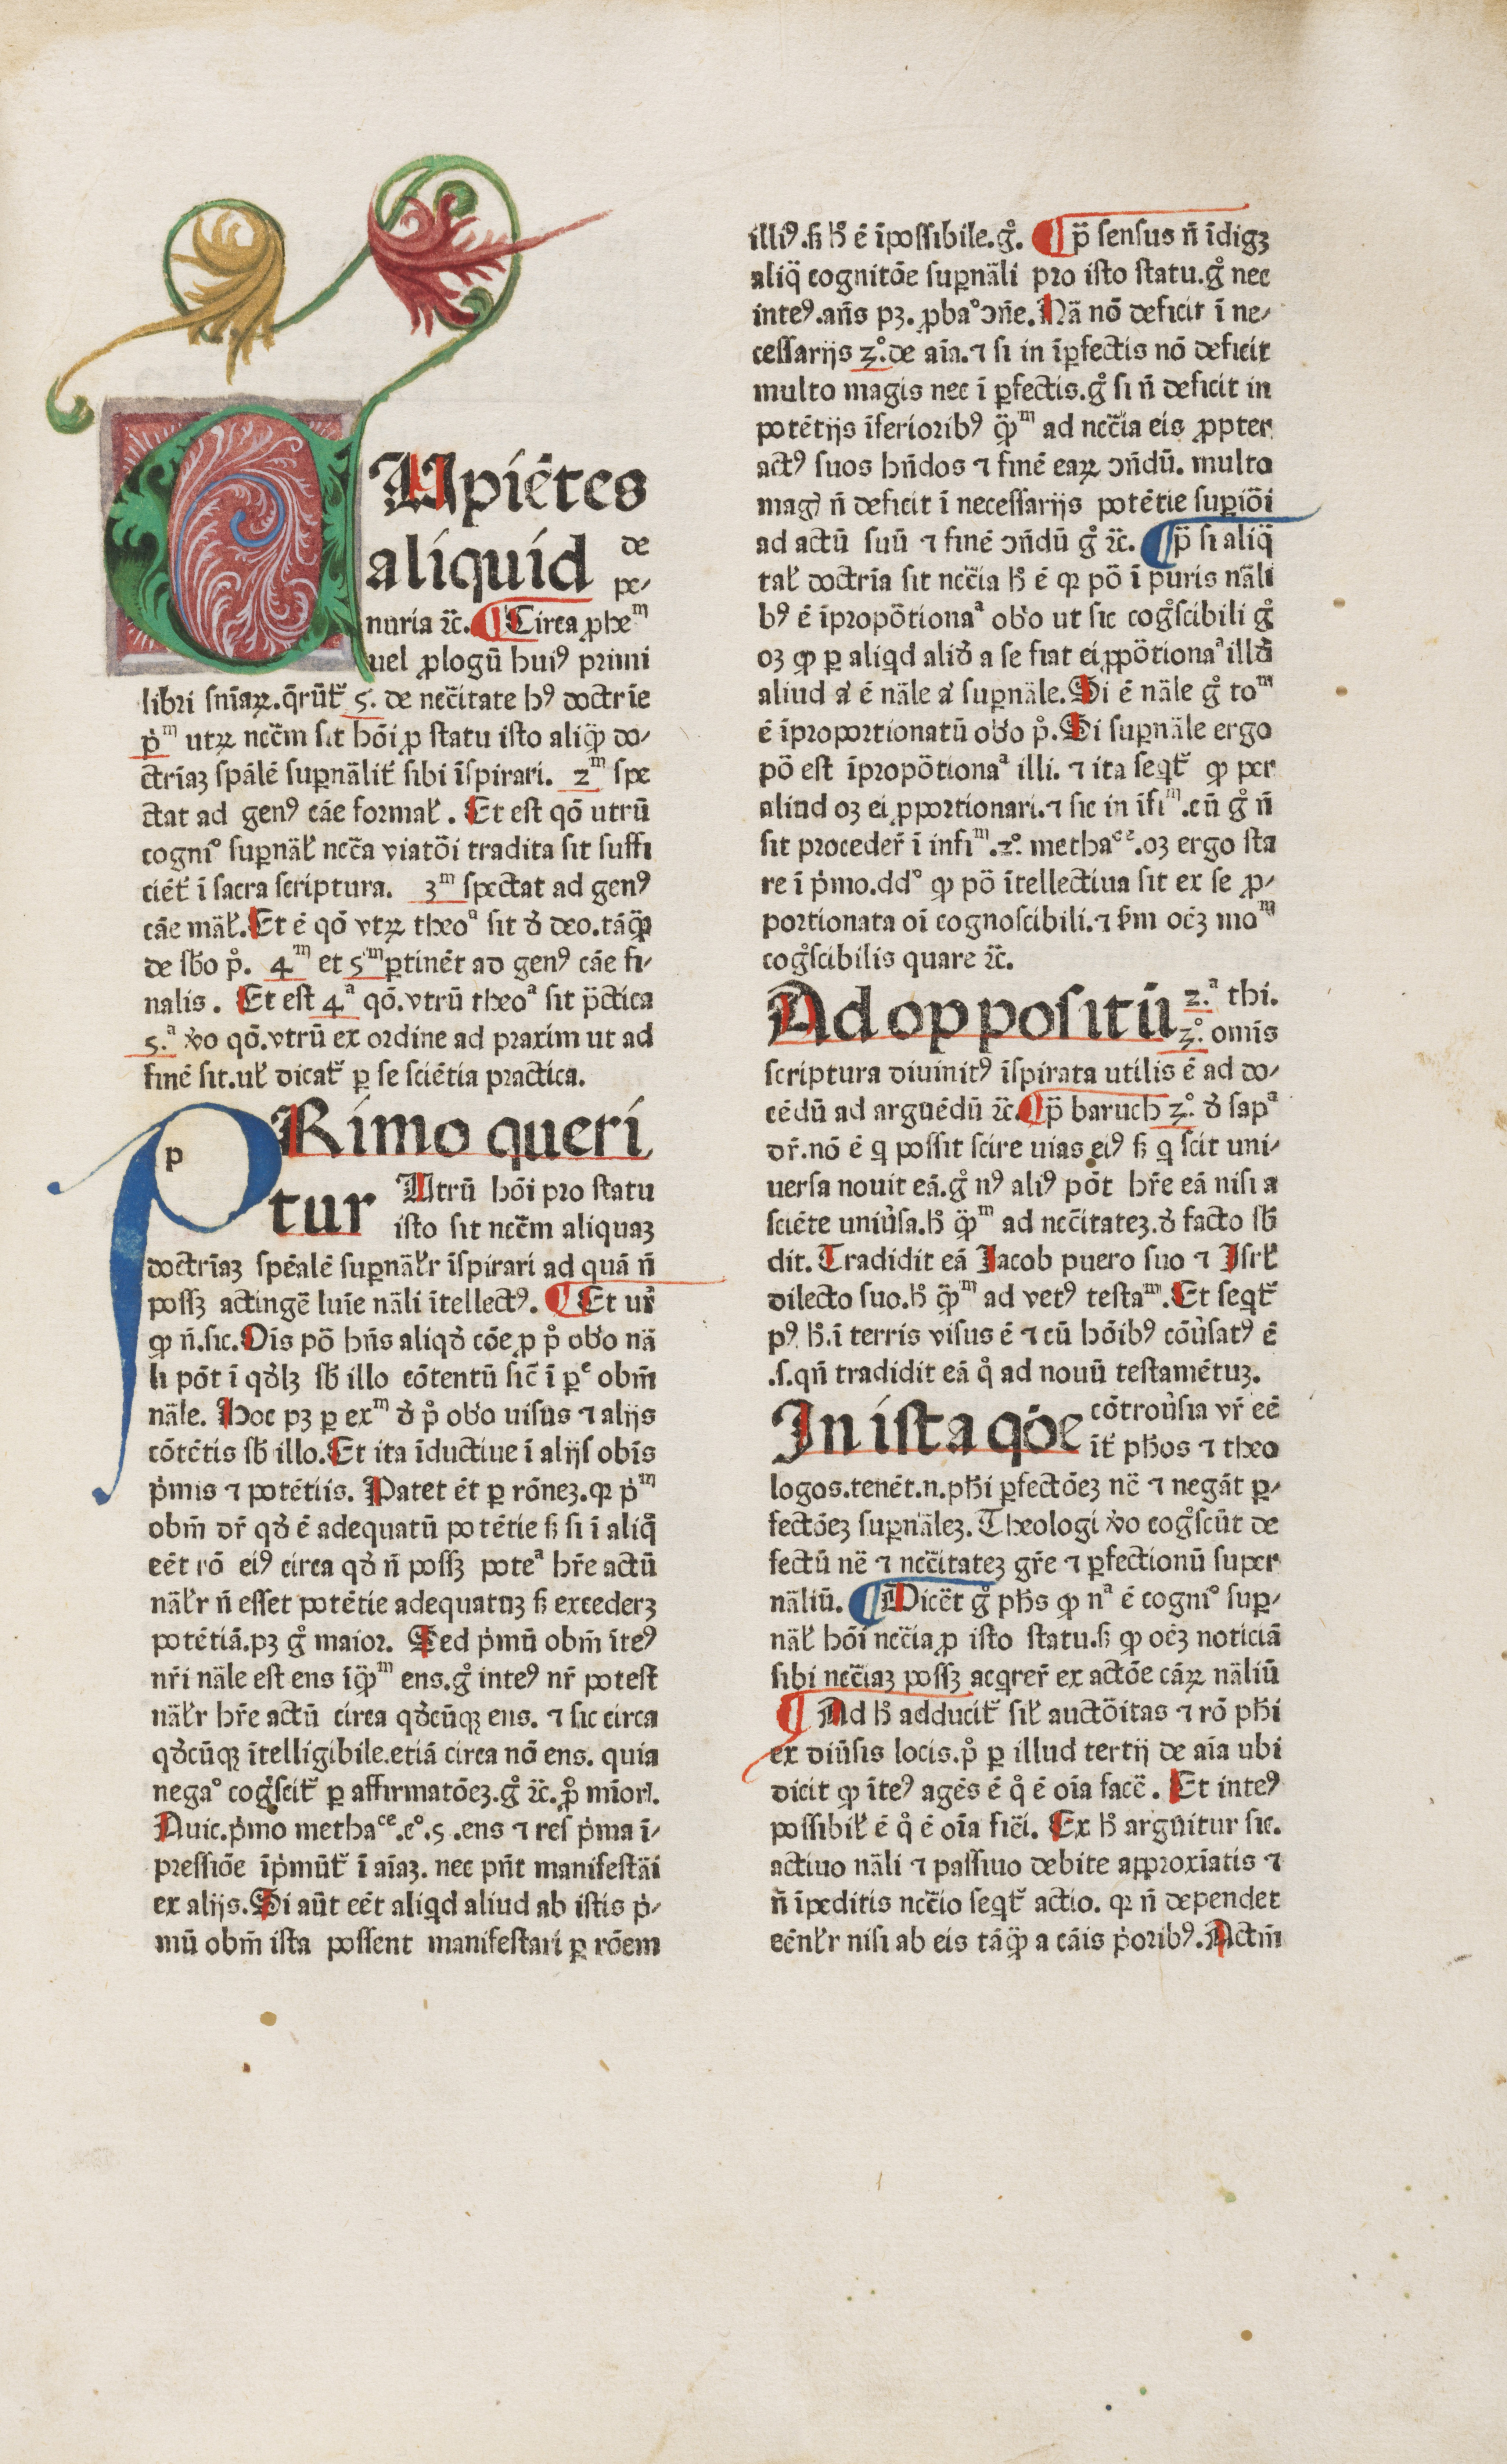 CUpiētes
aliquid de
pe-
nuria ⁊c̄. ¶ Circa ꝓheᵐ
uel ꝓlogū huiꝰ primi
libri sn̄iaꝝ. q̄rūt᷑ 5. de nec̄itate hꝰ doctrīe
pͥᵐ utꝝ nec̄m sit hōi ꝓ statu isto aliꝙ̄ do-
ctrīaꝫ spālē suꝑnālit᷑ sibi īspirari. 2ᵐ spe
ctat ad genꝰ cāe formaƚ. Et est qō utrū
cogniº suꝑnāƚ nec̄a viatōi tradita sit suffi
ciēt᷑ ī sacra scriptura. 3ᵐ spectat ad genꝰ
cāe māƚ. Et ē qō vtꝝ theoª sit ꝺ̾ deo. tāꝙ̄
de sb̄o pº. 4ᵐ et 5ᵐ ꝑtinēt ad genꝰ cāe fi-
nalis. Et est 4ª qō. vtrū theoª sit p̄ctica
5.ª v̾o qō. vtrū ex ordine ad praxim ut ad
finē sit. uƚ dicat᷑ ꝑ se sciētia practica.
p
PRimo queri
tur Utrū hōi pro statu
isto sit nec̄m aliquaꝫ
doctrīaꝫ spēalē suꝑnāƚr īspirari ad quā n̄
possꝫ actingē luīe nāli ītellectꝰ. ¶ Et ur̄
ꝙ n̄. sic. Oīs pō hn̄s aliqꝺ̾ cōe ꝓ pº ob̾o nā
li pōt ī qꝺ̾lꝫ sb̄ illo cōtentū sic̄ ī ꝑᵉ obm̄
nāle. Hoc pꝫ ꝑ exᵐ ꝺ̾ pº ob̾o uisus ⁊ alijs
cōtētis sb̄ illo. Et ita īductiue ī alijs obīs
pͥmis ⁊ potētiis. Patet ēt ꝑ rōneꝫ. qꝛ pͥᵐ
obm̄ dr̄ qꝺ̾ ē adequatū potētie ß si ī aliqº
eēt rō eiꝰ circa qꝺ̾ n̄ possꝫ poteª hr̄e actū
nāƚr n̄ esset potētie adequatuꝫ ß excederꝫ
potētiā. pꝫ gº maior. Sed pͥmū obm̄ īteꝰ
nr̄i nāle est ens īꝙ̄ᵐ ens. gº inteꝰ nr̄ potest
nāƚr hr̄e actū circa qꝺ̾cūqꝫ ens. ⁊ sic circa
qꝺ̾cūqꝫ ītelligibile. etiā circa nō ens. quia
negaº cogºscit᷑ ꝑ affirmatōeꝫ. gº ⁊c̄. ꝓº mīorͥ.
Auic. pͥmo methaᶜᵉ. cº. 5. ens ⁊ res pͥma ī-
pressiōe īpͥmūt᷑ ī aīaꝫ. nec pn̄t manifestāi
ex alijs. Si aūt eēt aliqͥd aliud ab istis pͥ-
mū obm̄ ista possent manifestari ꝑ rōem
illiꝰ. ß hº ē īpossibile. gº. ¶ p̄ sensus n̄ īdigꝫ
aliq̄ cognitōe suꝑnāli pro isto statu. gº nec
inteꝰ. an̄s pꝫ. ꝓbaº ɔn̄e. Nā nō deficit ī ne-
cessarijs 3.º de aīa. ⁊ si in īꝑfectis nō deficit
multo magis nec ī ꝑfectis. gº si n̄ deficit in
potētijs īferioribꝰ ꝙ̄ᵐ ad nec̄ia eis ꝓpter
actꝰ suos hn̄dos ⁊ finē eaꝝ ɔn̄dū. multo
magꝭ n̄ deficit ī necessarijs potētie suꝑiōi
ad actū suū ⁊ finē ɔn̄dū gº ⁊c̄. ¶ p̄ si aliq̄
taƚ doctrīa sit nec̄ia hº ē qꝛ pō ī puris nāli
bꝰ ē īpropōtionaª ob̾o ut sic cogºscibili gº
oꝫ ꝙ ꝑ aliqͥd aliꝺ̾ a se fiat ei ꝓpōtionaª illꝺ̾
aliud aͭ ē nāle aͭ suꝑnāle. Si ē nāle gº toᵐ
ē īproportionatū ob̾o pº. Si suꝑnāle ergo
pō est īpropōtionaª illi. ⁊ ita seqͥt᷑ ꝙ per
aliud oꝫ ei ꝓportionari. ⁊ sic in īfiᵐ. cū gº n̄
sit proceder̄ ī infiᵐ. 2.º methaᶜᵉ. oꝫ ergo sta
re ī pͥmo. ddº ꝙ pō ītellectiua sit ex se ꝓ-
portionata oī cognoscibili. ⁊ ẜm oēꝫ moᵐ
cogºscibilis quare ⁊c̄.
Ad oppositū 2.ª thi.
3.º omīs
scriptura diuinitꝰ īspirata utilis ē ad do-
cēdū ad arguēdū ⁊c̄. ¶ p̄ baruch 3.º ꝺ̾ sapª
dr̄. nō ē qͥ possit scire uias eiꝰ ß qͥ scit uni-
uersa nouit eā. gº nꝰ aliꝰ pōt hr̄e eā nisi a
sciēte uniu̾sa. hº ꝙ̄ᵐ ad nec̄itateꝫ. ꝺ̾ facto sb̄
dit. Tradidit eā Jacob puero suo ⁊ Isrƚ
dilecto suo. hº ꝙ̄ᵐ ad vetꝰ testaᵐ. Et seqͥt᷑
pꝰ hº. ī terris visus ē ⁊ cū hōibꝰ cōu̾satꝰ ē
.s. qn̄ tradidit eā qº ad nouū testamētuꝫ.
In ista qōe cōtrou̾sia vr̄ eē
īt᷑ phōs ⁊ theo
logos. tenēt. n. phī ꝑfectōeꝫ nē ⁊ negāt ꝑ-
fectōeꝫ suꝑnāleꝫ. Theologi v̾o cogºscūt de
fectū nē ⁊ nec̄itateꝫ gr̄e ⁊ ꝑfectionū super
nāliū. ¶ Dicēt gº phs̄ ꝙ nª ē cogniº suꝑ-
nāƚ hōi nec̄ia ꝓ isto statu. ß ꝙ oēꝫ noticiā
sibi nec̄iaꝫ possꝫ acqͥrer̄ ex actōe cāꝝ nāliū
¶ Ad hº adducit᷑ siƚ auctōitas ⁊ rō phī
ex diu̾sis locis. pº ꝑ illud tertij de aīa ubi
dicit ꝙ īteꝰ agēs ē qº ē oīa facē. Et inteꝰ
possibiƚ ē qº ē oīa fic̄i. Ex hº arguītur sic.
actiuo nāli ⁊ passiuo debite approxīatis ⁊
n̄ īpeditis nec̄io seqͥt᷑ actio. qꝛ n̄ dependet
eēnƚr nisi ab eis tāꝙ̄ a cāis pͥoribꝰ. Actm̄